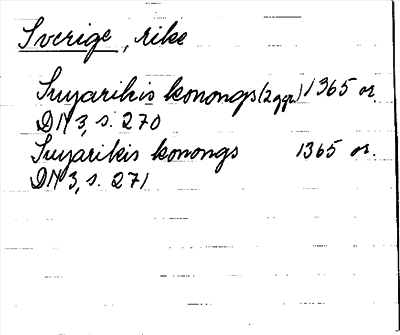 Sverige, rike
Suyarikis konongs (2 ggr) 1365 or.
DN 3, s. 270
Suyarikis konongs 1365 or.
DN 3, s. 271